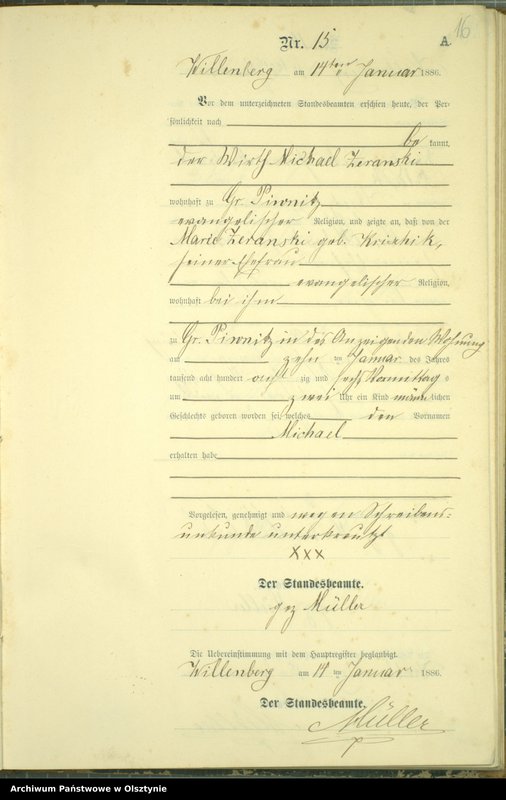 16
Nr. 15 A.
Willenberg am 14ten Januar 1886.
Vor dem unterzeichneten Standesbeamten erschien heute, der Per-
sönlichkeit nach
be kannt,
der Wirth Michael Zeranski
wohnhaft zu Gr. Piwnitz
evangelischer Religion, und zeigte an, daß von der
Marie Zeranski geb. Krischik,
seiner Ehefrau
evangelischer Religion,
wohnhaft bei ihm
zu Gr. Piwnitz in des Anzeigenden Wohnung
am zehn ten Januar des Jahres
tausend acht hundert acht zig und sechs Vormittag s
um zwei Uhr ein Kind männ lichen
Geschlechts geboren worden sei, welches den Vornamen
Michael
erhalten habe
Vorgelesen, genehmigt und wegen Schreibens-
unkunde unterkreutzt
XXX
Der Standesbeamte.
gez Müller
Die Uebereinstimmung mit dem Hauptregister beglaubigt.
Willenberg am 14 ten Januar 1886.
Der Standesbeamte.
Müller
Archiwum Państwowe w Olsztynie